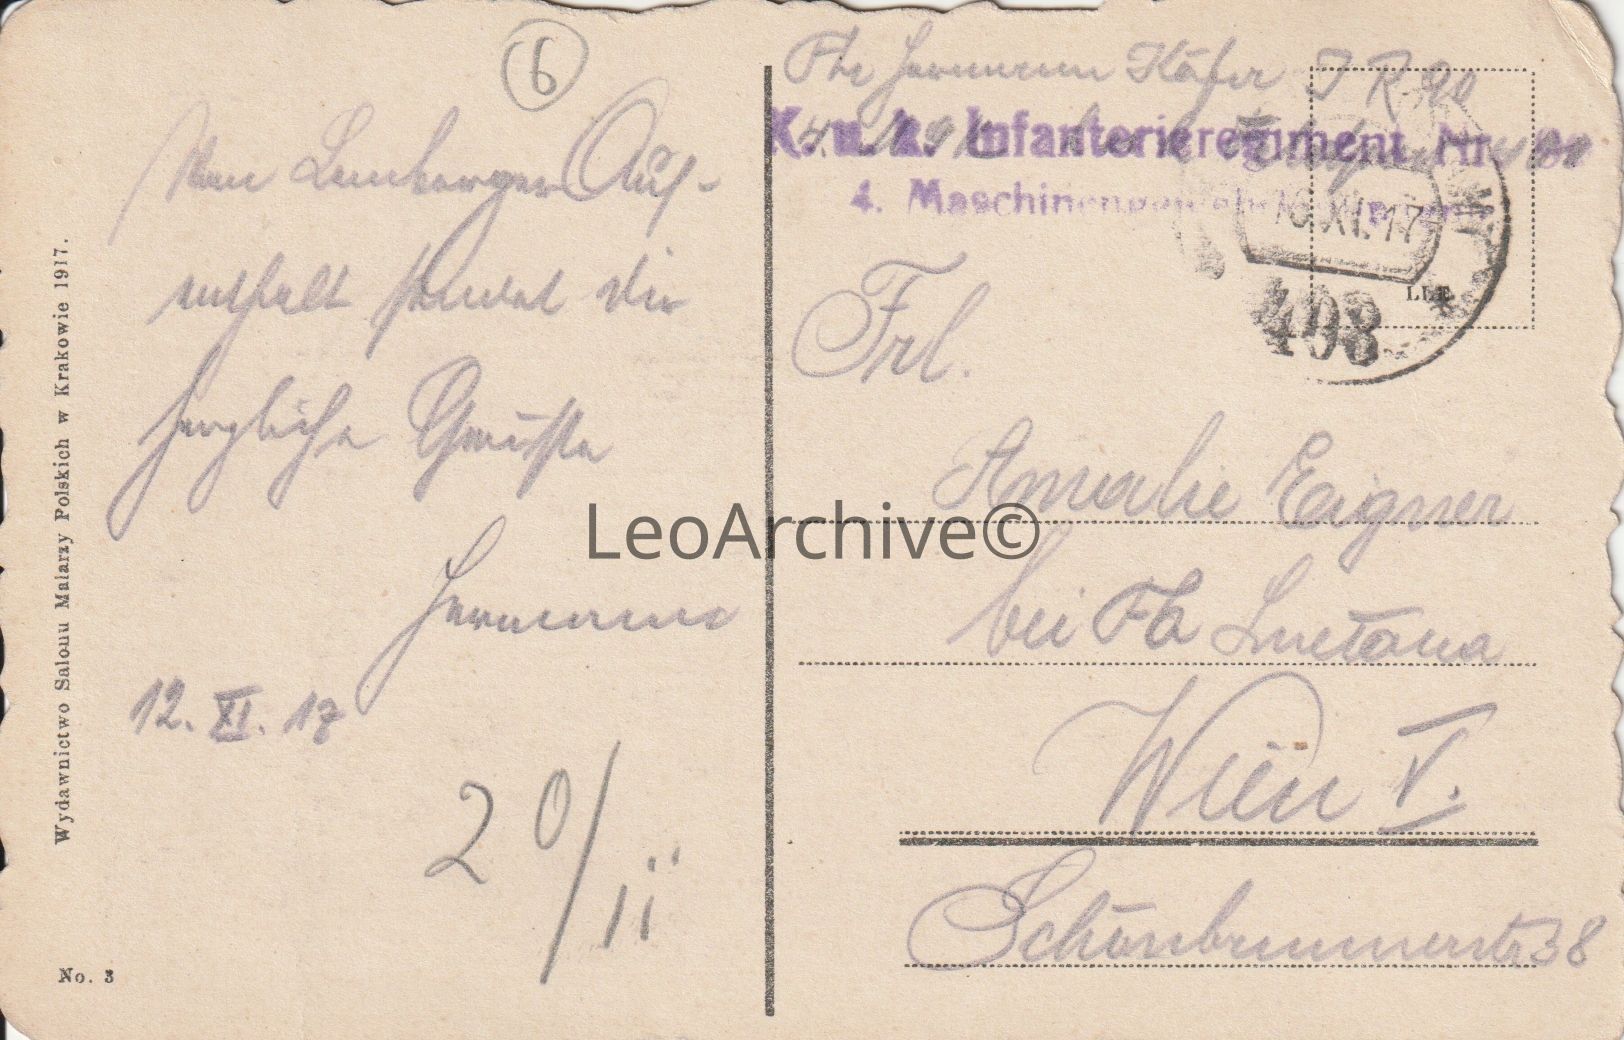 6
Vom Lemberger Auf-
enthalt sendet die
herzliche Grüße
Hermann
12. XI. 17
20/11
Wydawnictwo Salonu Malarzy Polskich w Krakowie 1917.
No. 3
Hermann Käfer I R 90
K. u. k. Infanterieregiment Nr. 90
4. Maschinengewehrkompagnie
16. XI. 17
408
Frl.
Amalie Eigner
bei Fa Smetana
Wien V.
Schönbrunnerstr 38
LeoArchive©